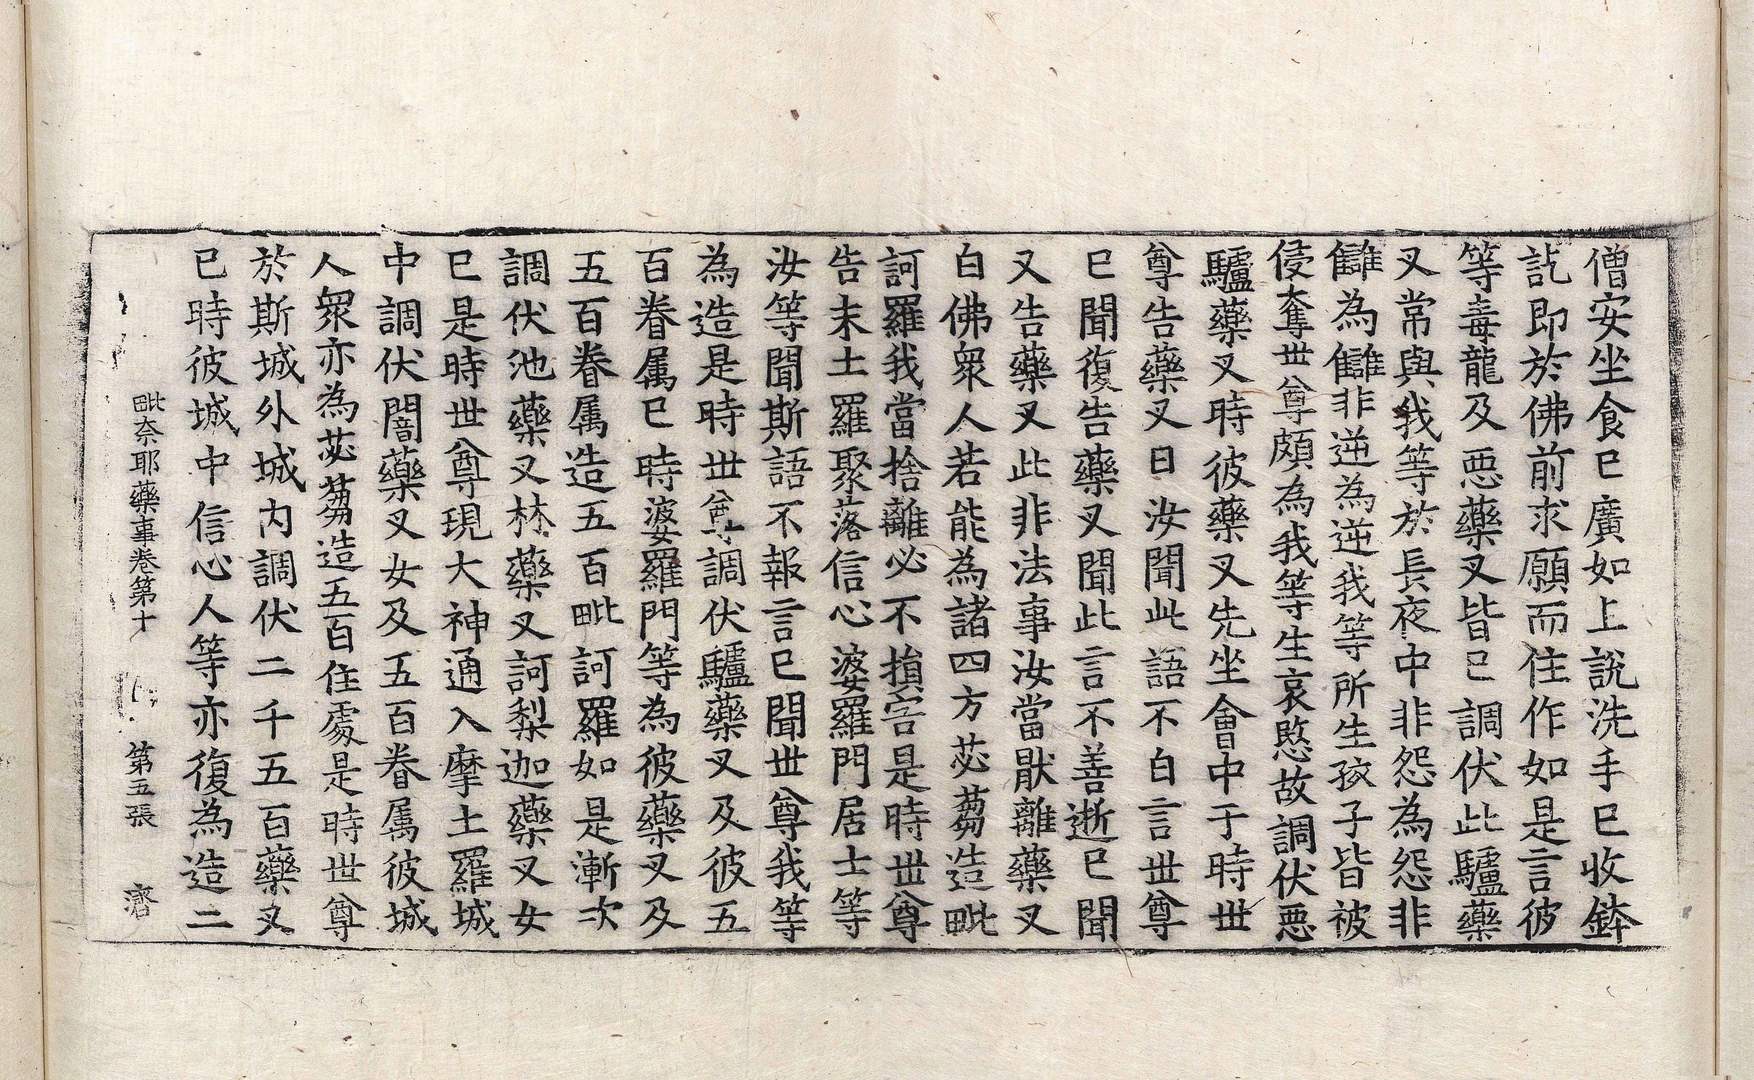 僧安坐食已廣如上說洗手已收鉢
訖即於佛前求願而住作如是言彼
等毒龍及惡藥叉皆已調伏此驢藥
叉常與我等於長夜中非怨為怨非
讎為讎非逆為逆我等所生孩子皆被
侵奪世尊頗為我等生哀愍故調伏惡
驢藥叉時彼藥叉先坐會中于時世
尊告藥叉曰汝聞此語不白言世尊
已聞復告藥叉聞此言不善逝已聞
又告藥叉此非法事汝當猒離藥叉
白佛眾人若能為諸四方苾芻造毗
訶羅我當捨離必不損害是時世尊
告末土羅聚落信心婆羅門居士等
汝等聞斯語不報言已聞世尊我等
為造是時世尊調伏驢藥叉及彼五
百眷属已時婆羅門等為彼藥叉及
五百眷属造五百毗訶羅如是漸次
調伏池藥叉林藥叉訶梨迦藥叉女
已是時世尊現大神通入摩土羅城
中調伏闇藥叉女及五百眷属彼城
人眾亦為苾芻造五百住處是時世尊
於斯城外城內調伏二千五百藥叉
已時彼城中信心人等亦復為造二
毗奈耶藥事卷第十 第五張 濟